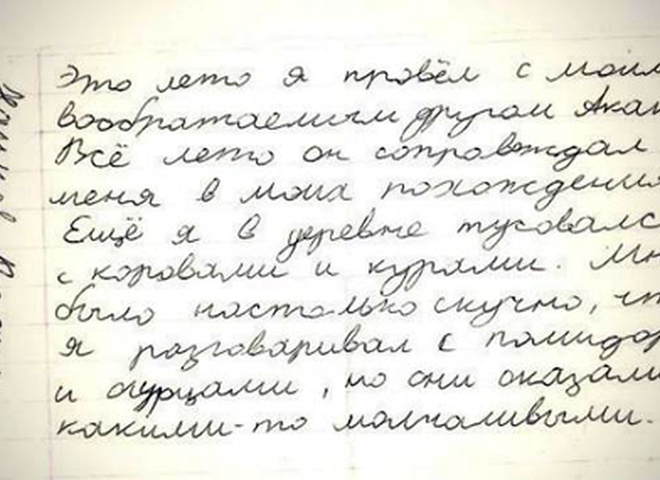 Это лето я провёл с моим
вообратаемым другом Акак
Всё лето он сопровождал
меня в моих похождения
Ещё я в деревне тусовалс
с коровами и курями. Мн
было настолько скучно, чт
я разговаривал с помидор
и огурцами, но они оказали
какими-то молчаливыми.